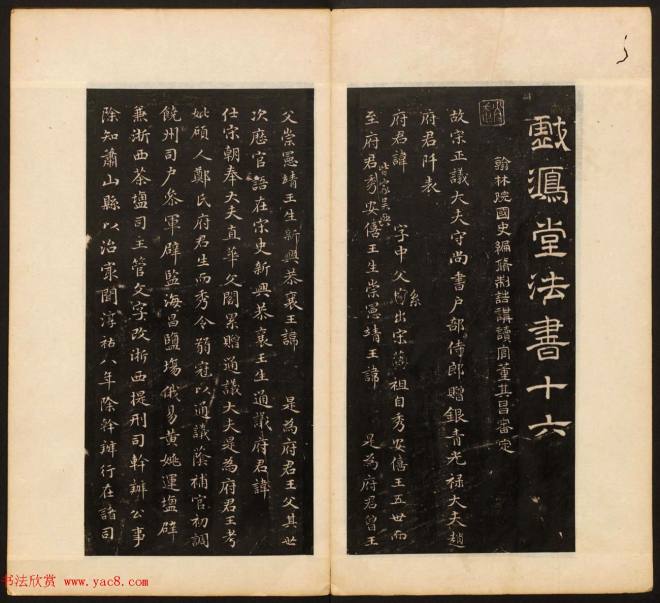 戲鴻堂法書十六
翰林院國史編脩制誥講讀官董其昌審定
故宋正議大夫守尚書戶部侍郎贈銀青光禄大夫趙
府君阡表
府君諱 字中父系出宋藝祖自秀安僖王五世而
皆家吳興
至府君秀安僖王生崇憲靖王諱 是為府君曾王
父崇憲靖王生新興恭襄王諱 是為府君王父其世
次歷官語在宋史新興恭襄王生通議府君諱
仕宋朝奉大夫直華文閣累贈通議大夫是為府君王考
妣碩人鄭氏府君生而秀令弱冠以通議蔭補官初調
饒州司戶參軍辟監海昌鹽場俄易黄姚運鹽辟
兼浙西茶鹽司主管文字改浙西提刑司幹辦公事
除知蕭山縣以治家聞淳祐八年除幹辦行在諸司
书法欣赏 www.yac8.com